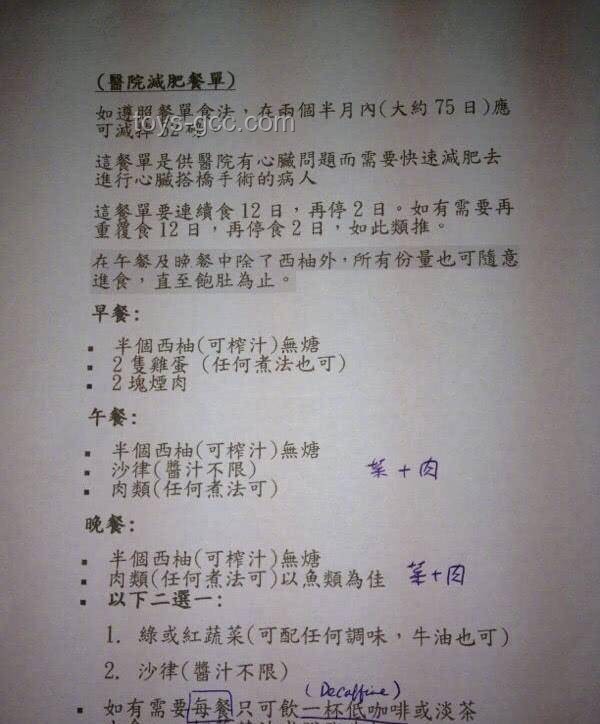 (醫院減肥餐單)
如遵照餐單食法，在兩個半月內(大約 75 日)應
可減掉
toys-gcc.com
這餐單是供醫院有心臟問題而需要快速減肥去
進行心臟搭橋手術的病人
這餐單要連續食 12 日，再停 2 日。如有需要再
重覆食 12 日，再停食 2 日，如此類推。
在午餐及晚餐中除了西柚外，所有份量也可隨意
進食，直至飽肚為止。
早餐:
▪ 半個西柚(可榨汁)無煻
▪ 2 隻雞蛋 (任何煮法也可)
▪ 2 塊煙肉
午餐:
▪ 半個西柚(可榨汁)無煻
▪ 沙律(醬汁不限) 菜+肉
▪ 肉類(任何煮法可)
晚餐:
▪ 半個西柚(可榨汁)無煻
▪ 肉類(任何煮法可)以魚類為佳 菜+肉
▪ 以下二選一:
1. 綠或紅蔬菜(可配任何調味，牛油也可)
2. 沙律(醬汁不限)
(Decaffine)
▪ 如有需要每餐只可飲一杯低咖啡或淡茶